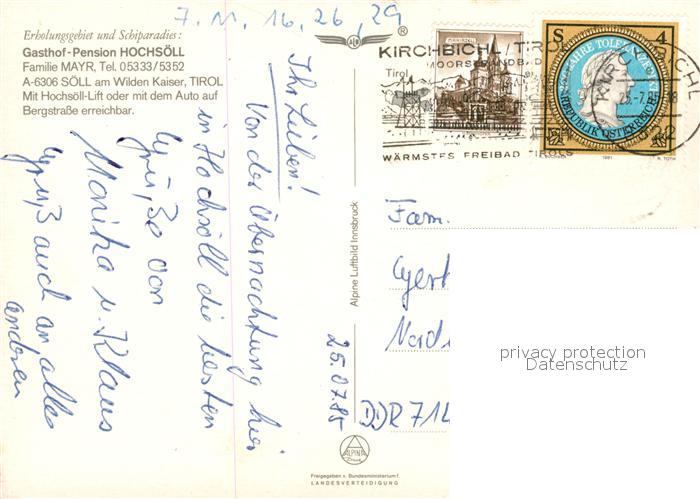 7. M. 16, 26, 29
Erholungsgebiet und Schiparadies:
Gasthof-Pension HOCHSÖLL
Familie MAYR, Tel. 05333/5352
A-6306 SÖLL am Wilden Kaiser, TIROL
Mit Hochsöll-Lift oder mit dem Auto auf
Bergstraße erreichbar.
Ihr Lieben!
Von der Übernachtung hier
in Hochsöll die besten
Grüße von
Monika u. Klaus
Gruß auch an alle
anderen
25.07.85
Alpine Luftbild Innsbruck
ALPINE
Freigegeben v. Bundesministerium f.
LANDESVERTEIDIGUNG
®
KIRCHBICHL / TIROL
MOORSTRANDBAD
Tirol
WÄRMSTES FREIBAD TIROLS
MARIAZELL
S 4
REPUBLIK ÖSTERREICH
1981
R. TOTH
KIRCHBICHL
Fam.
Gert
DDR 714
privacy protection
Datenschutz